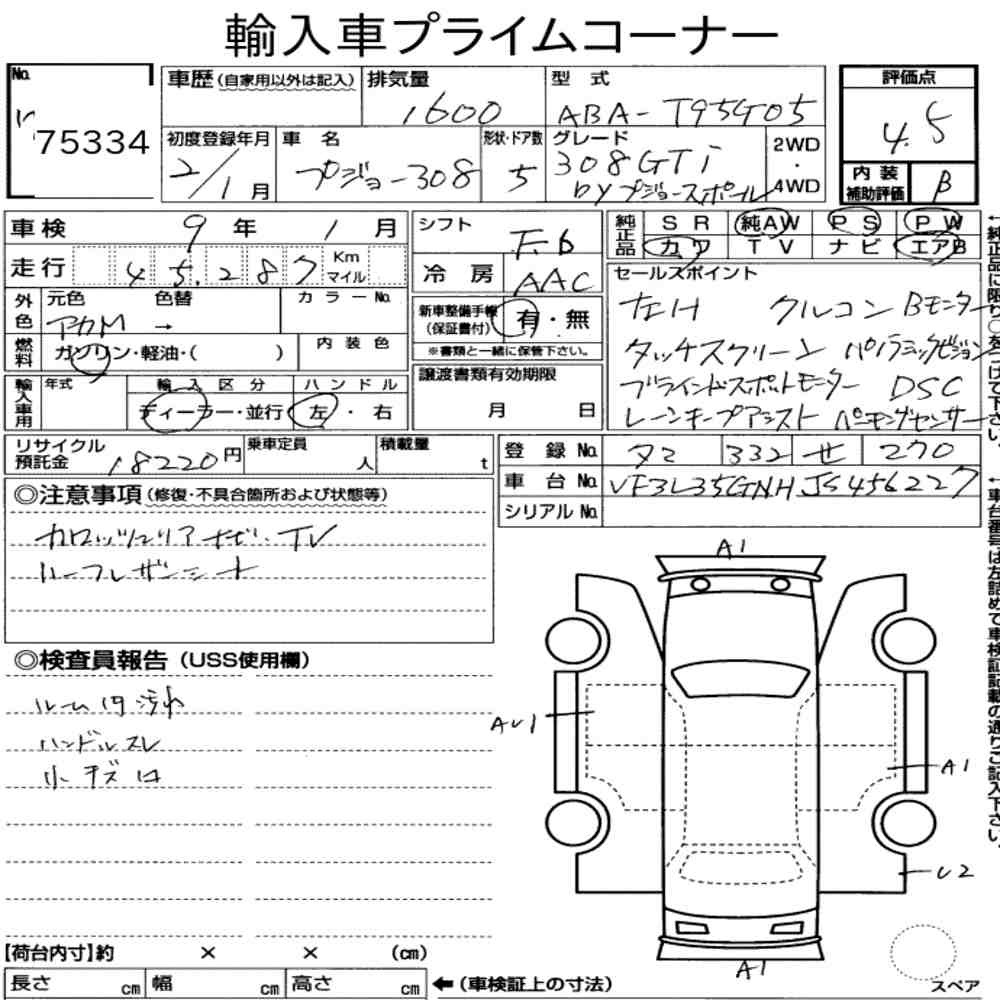 輸入車プライムコーナー
No. 75334
車歴 (自家用以外は記入)
排気量 1600
型式 ABA-T95G05
評価点 4.5
初度登録年月 2/1月
車名 プジョー308
形状・ドア数 5
グレード 308GTi
byプジョースポール
2WD・4WD
内装補助評価 B
車検 9年 1月
シフト F6
純正品 SR 純AW PS PW
カワ TV ナビ エアB
走行 45,287 Km マイル
冷房 AAC
セールスポイント
左H クルコン Bモニター
タッチスクリーン パノラミックビジョン
ブラインドスポットモニター DSC
レーンキープアシスト パーキングセンサー
外色 元色 色替 カラーNo.
アカM →
新車整備手帳(保証書付) 有・無
※書類と一緒に保管下さい。
燃料 ガソリン・軽油・( )
内装色
譲渡書類有効期限
月 日
輸入車用 年式 輸入区分 ハンドル
ディーラー・並行 左・右
リサイクル預託金 18220円
乗車定員 人
積載量 t
登録No. タミ 332 せ 270
車台No. VF3L35GNHJS456227
シリアルNo.
◎注意事項(修復・不具合箇所および状態等)
カロッツェリアナビ・TV
ハーフレザーシート
◎検査員報告(USS使用欄)
ルーム内汚れ
ハンドルスレ
小キズ
A1
AU1
A1
U2
A1
スペア
【荷台内寸】約 × × (cm)
長さ cm 幅 cm 高さ cm
←(車検証上の寸法)
←純正品に限り○をつけて下さい。
←車台番号は左詰めで車検証記載の通りご記入下さい。